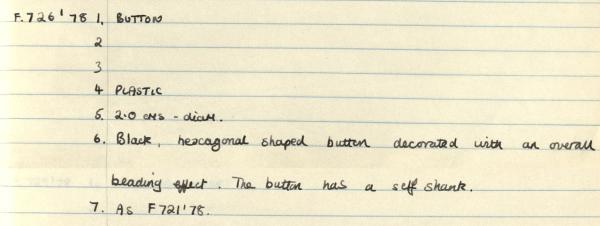 F.726'78 1. BUTTON
2
3
4 PLASTIC
5. 2.0 cms - diam.
6. Black, hexagonal shaped button decorated with an overall
beading effect. The button has a self shank.
7. As F721'78.